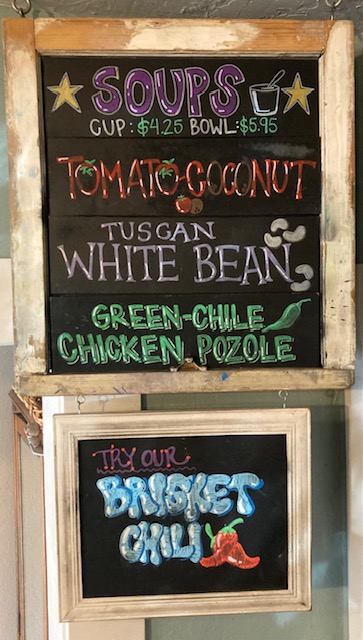 SOUPS
CUP: $4.25 BOWL: $5.95
TOMATO-COCONUT
TUSCAN
WHITE BEAN
GREEN-CHILE
CHICKEN POZOLE
TRY OUR
BRISKET
CHILI